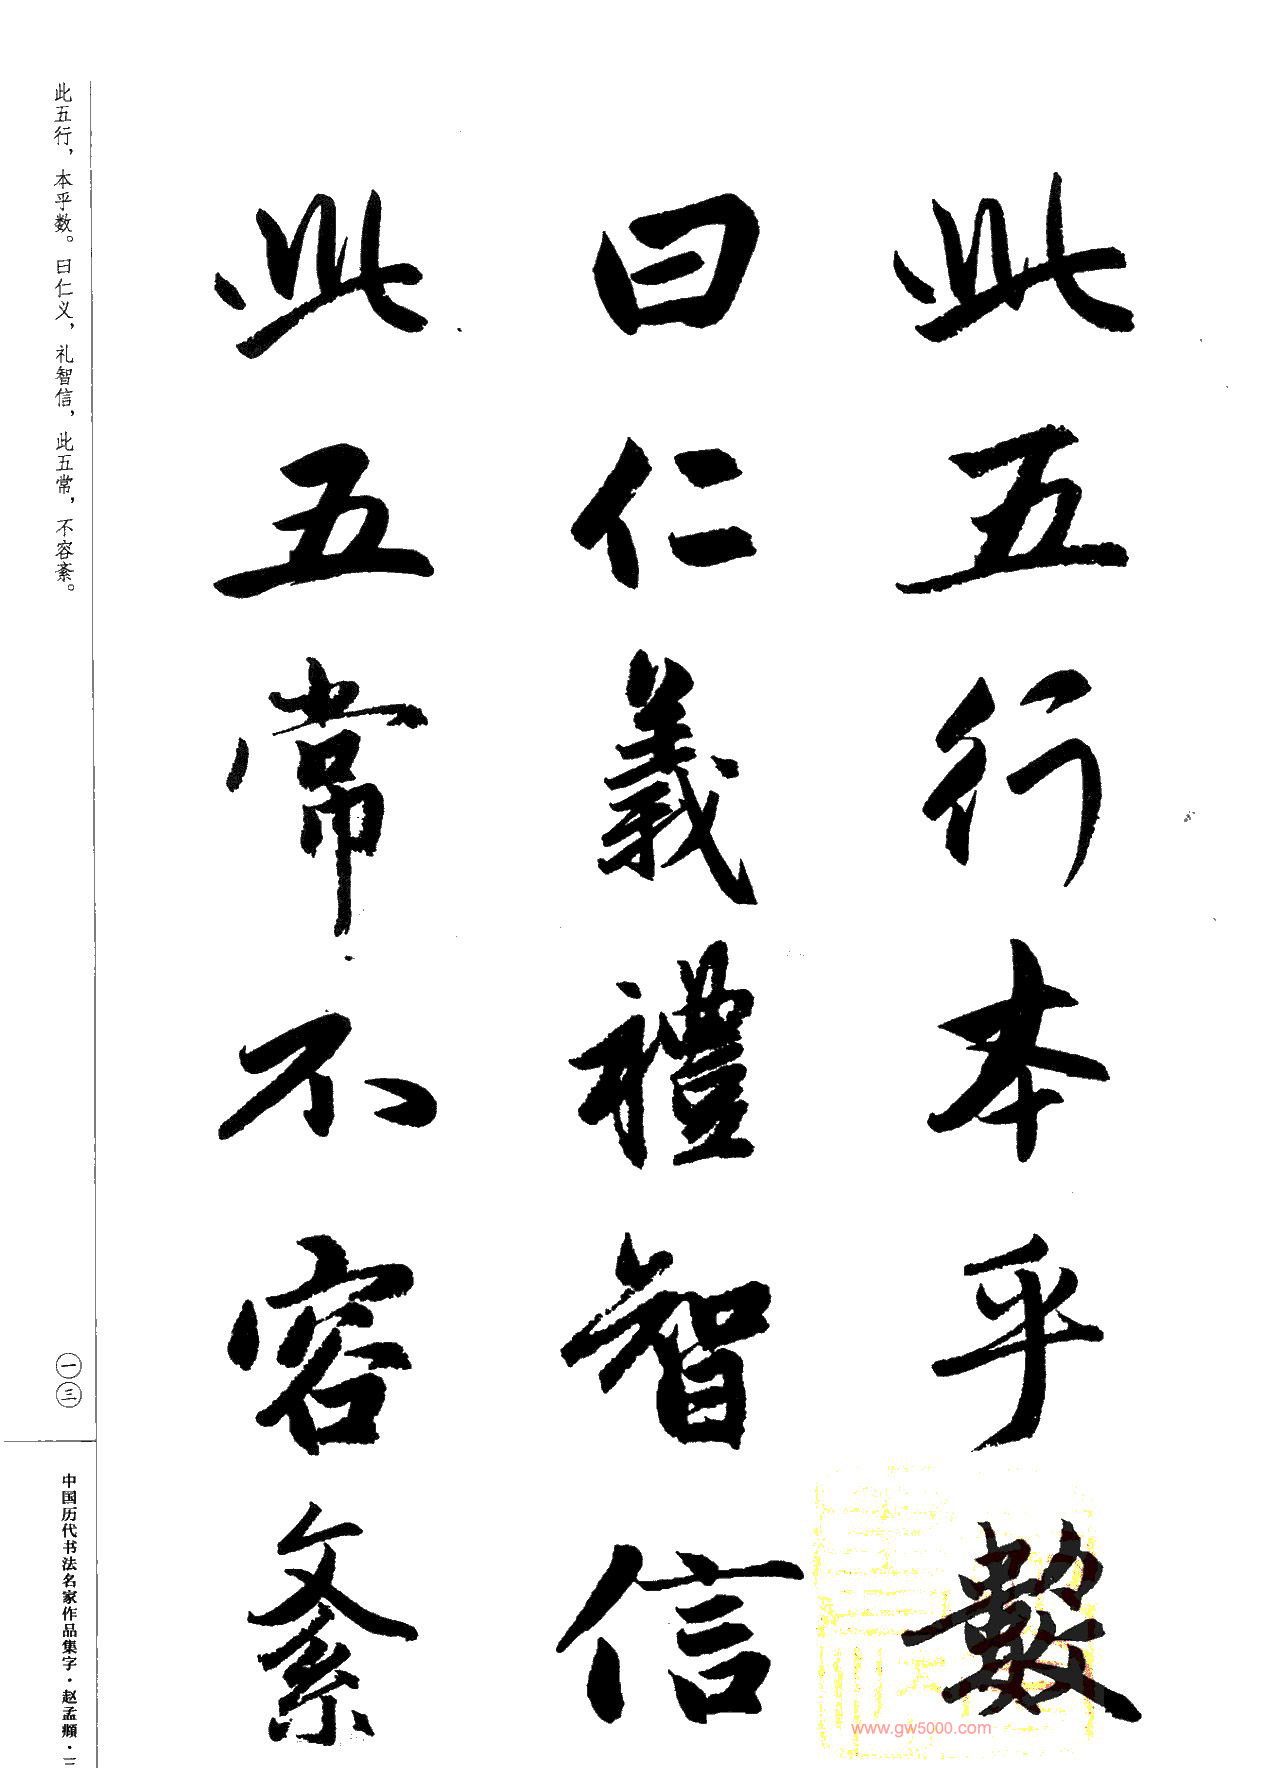 此五行本乎數
曰仁義禮智信
此五常不容紊
此五行，本乎数。曰仁义，礼智信，此五常，不容紊。
一三
中国历代书法名家作品集字·赵孟頫·三
www.gw5000.com